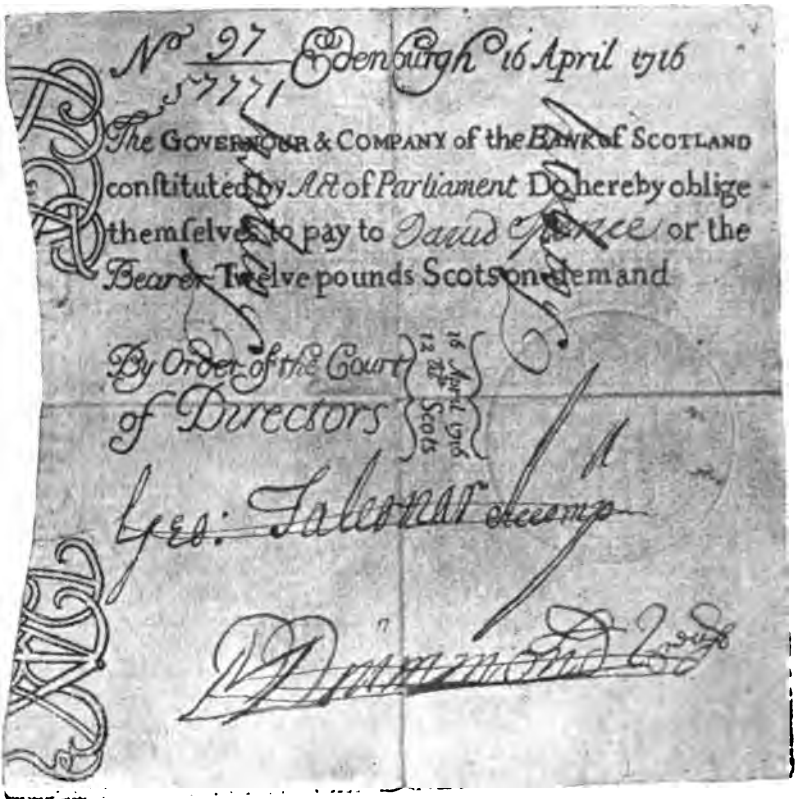 No 97
57771
Edenburgh 16 April 1716
The GOVERNOUR & COMPANY of the BANK of SCOTLAND
conſtituted by Act of Parliament Do hereby oblige
themſelves to pay to David Spence or the
Bearer Twelve pounds Scots on demand
By Order of the Court
of Directors
16 April 1716
12 lib Scots
Geo: Falconar Accomp
Drummond